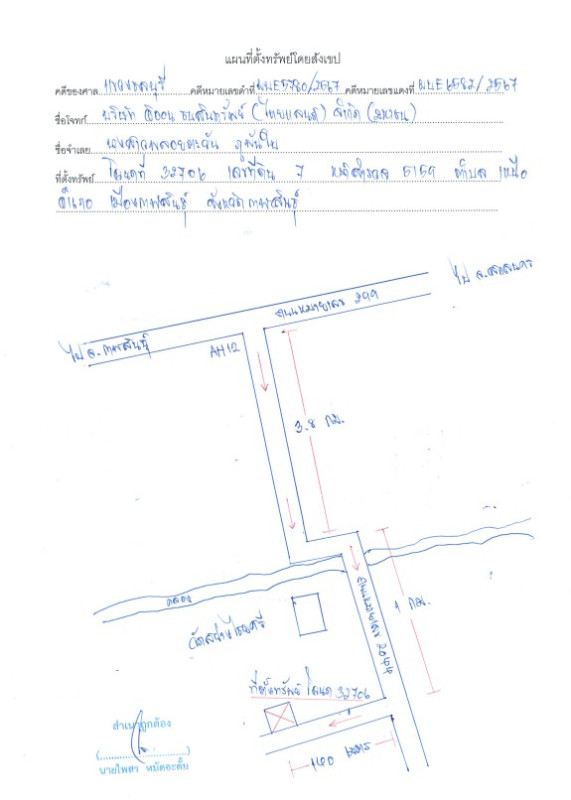 แผนที่ตั้งทรัพย์โดยสังเขป
คดีของศาล คดีหมายเลขดำที่ ผบE5780/2567 คดีหมายเลขแดงที่ ผบE6582/2567
ชื่อโจทก์ บริษัท อิออน ธนสินทรัพย์ (ไทยแลนด์) จำกัด (มหาชน)
ชื่อจำเลย นางสาวพลอยตะวัน
ที่ตั้งทรัพย์ โฉนดที่ 32706 เลขที่ดิน 7 หน้าสำรวจ 5159 ตำบล เหนือ
อำเภอ เมืองกาฬสินธุ์ จังหวัด กาฬสินธุ์
ไป จ.สกลนคร
ถนนหมายเลข
ไป จ.กาฬสินธุ์
AH12
3.8 กม.
คลอง
ถนนหมายเลข 2044
1 กม.
ที่ตั้งทรัพย์ โฉนด 32706
140 เมตร
สำเนาถูกต้อง
(....................)